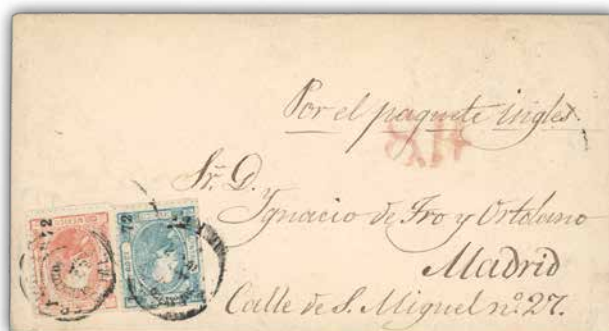 Por el paquete ingles
Sr. D.
Ygnacio de Fro y Ortolano
Madrid
Calle de S. Miguel nº 27.
72
72